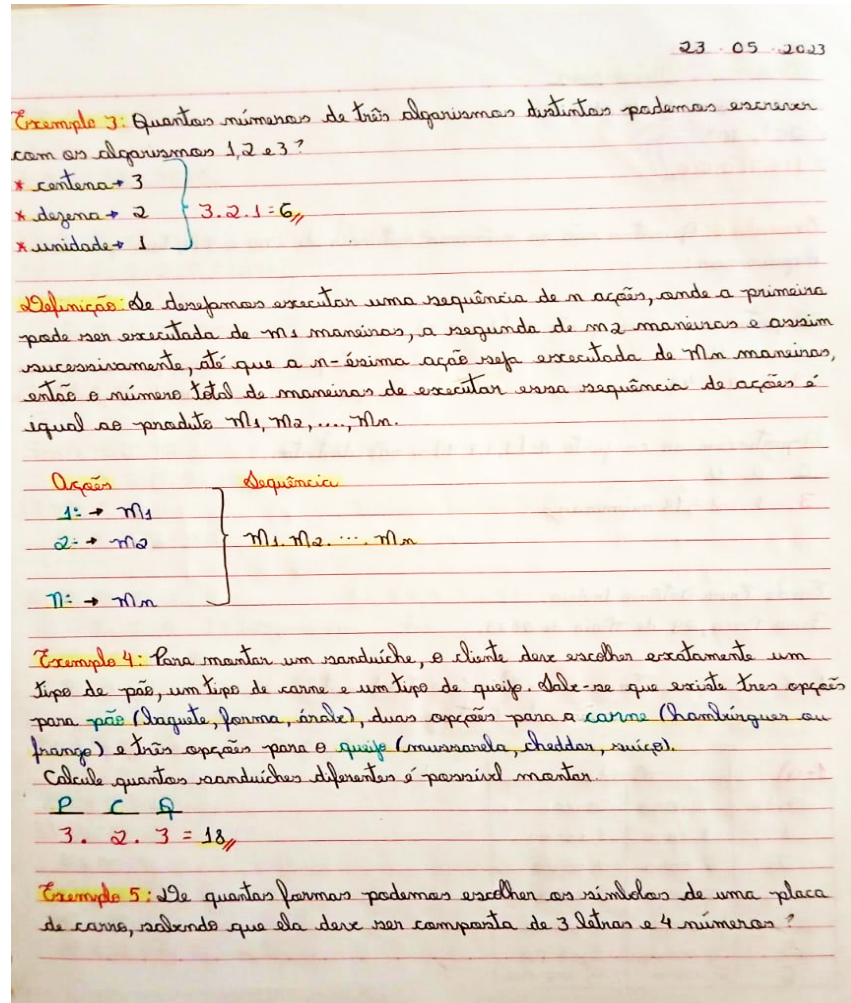 23 . 05 . 2023
Exemplo 3: Quantos números de três algarismos distintos podemos escrever
com os algarismos 1, 2 e 3?
* centena → 3
* dezena → 2 3 . 2 . 1 = 6
* unidade → 1
Definição: Se desejamos executar uma sequência de n ações, onde a primeira
pode ser executada de m1 maneiras, a segunda de m2 maneiras e assim
sucessivamente, até que a n-ésima ação seja executada de mn maneiras,
então o número total de maneiras de executar essa sequência de ações é
igual ao produto m1, m2, ..., mn.
Ações Sequência
1ª → m1
2ª → m2 m1 . m2 . ... . mn
nª → mn
Exemplo 4: Para montar um sanduíche, o cliente deve escolher exatamente um
tipo de pão, um tipo de carne e um tipo de queijo. Sabe-se que existe tres opções
para pão (baguete, forma, árabe), duas opções para a carne (hambúrguer ou
frango) e três opções para o queijo (mussarela, cheddar, suíço).
Calcule quantos sanduíches diferentes é possível montar.
P C Q
3 . 2 . 3 = 18
Exemplo 5: De quantas formas podemos escolher os símbolos de uma placa
de carro, sabendo que ela deve ser composta de 3 letras e 4 números?